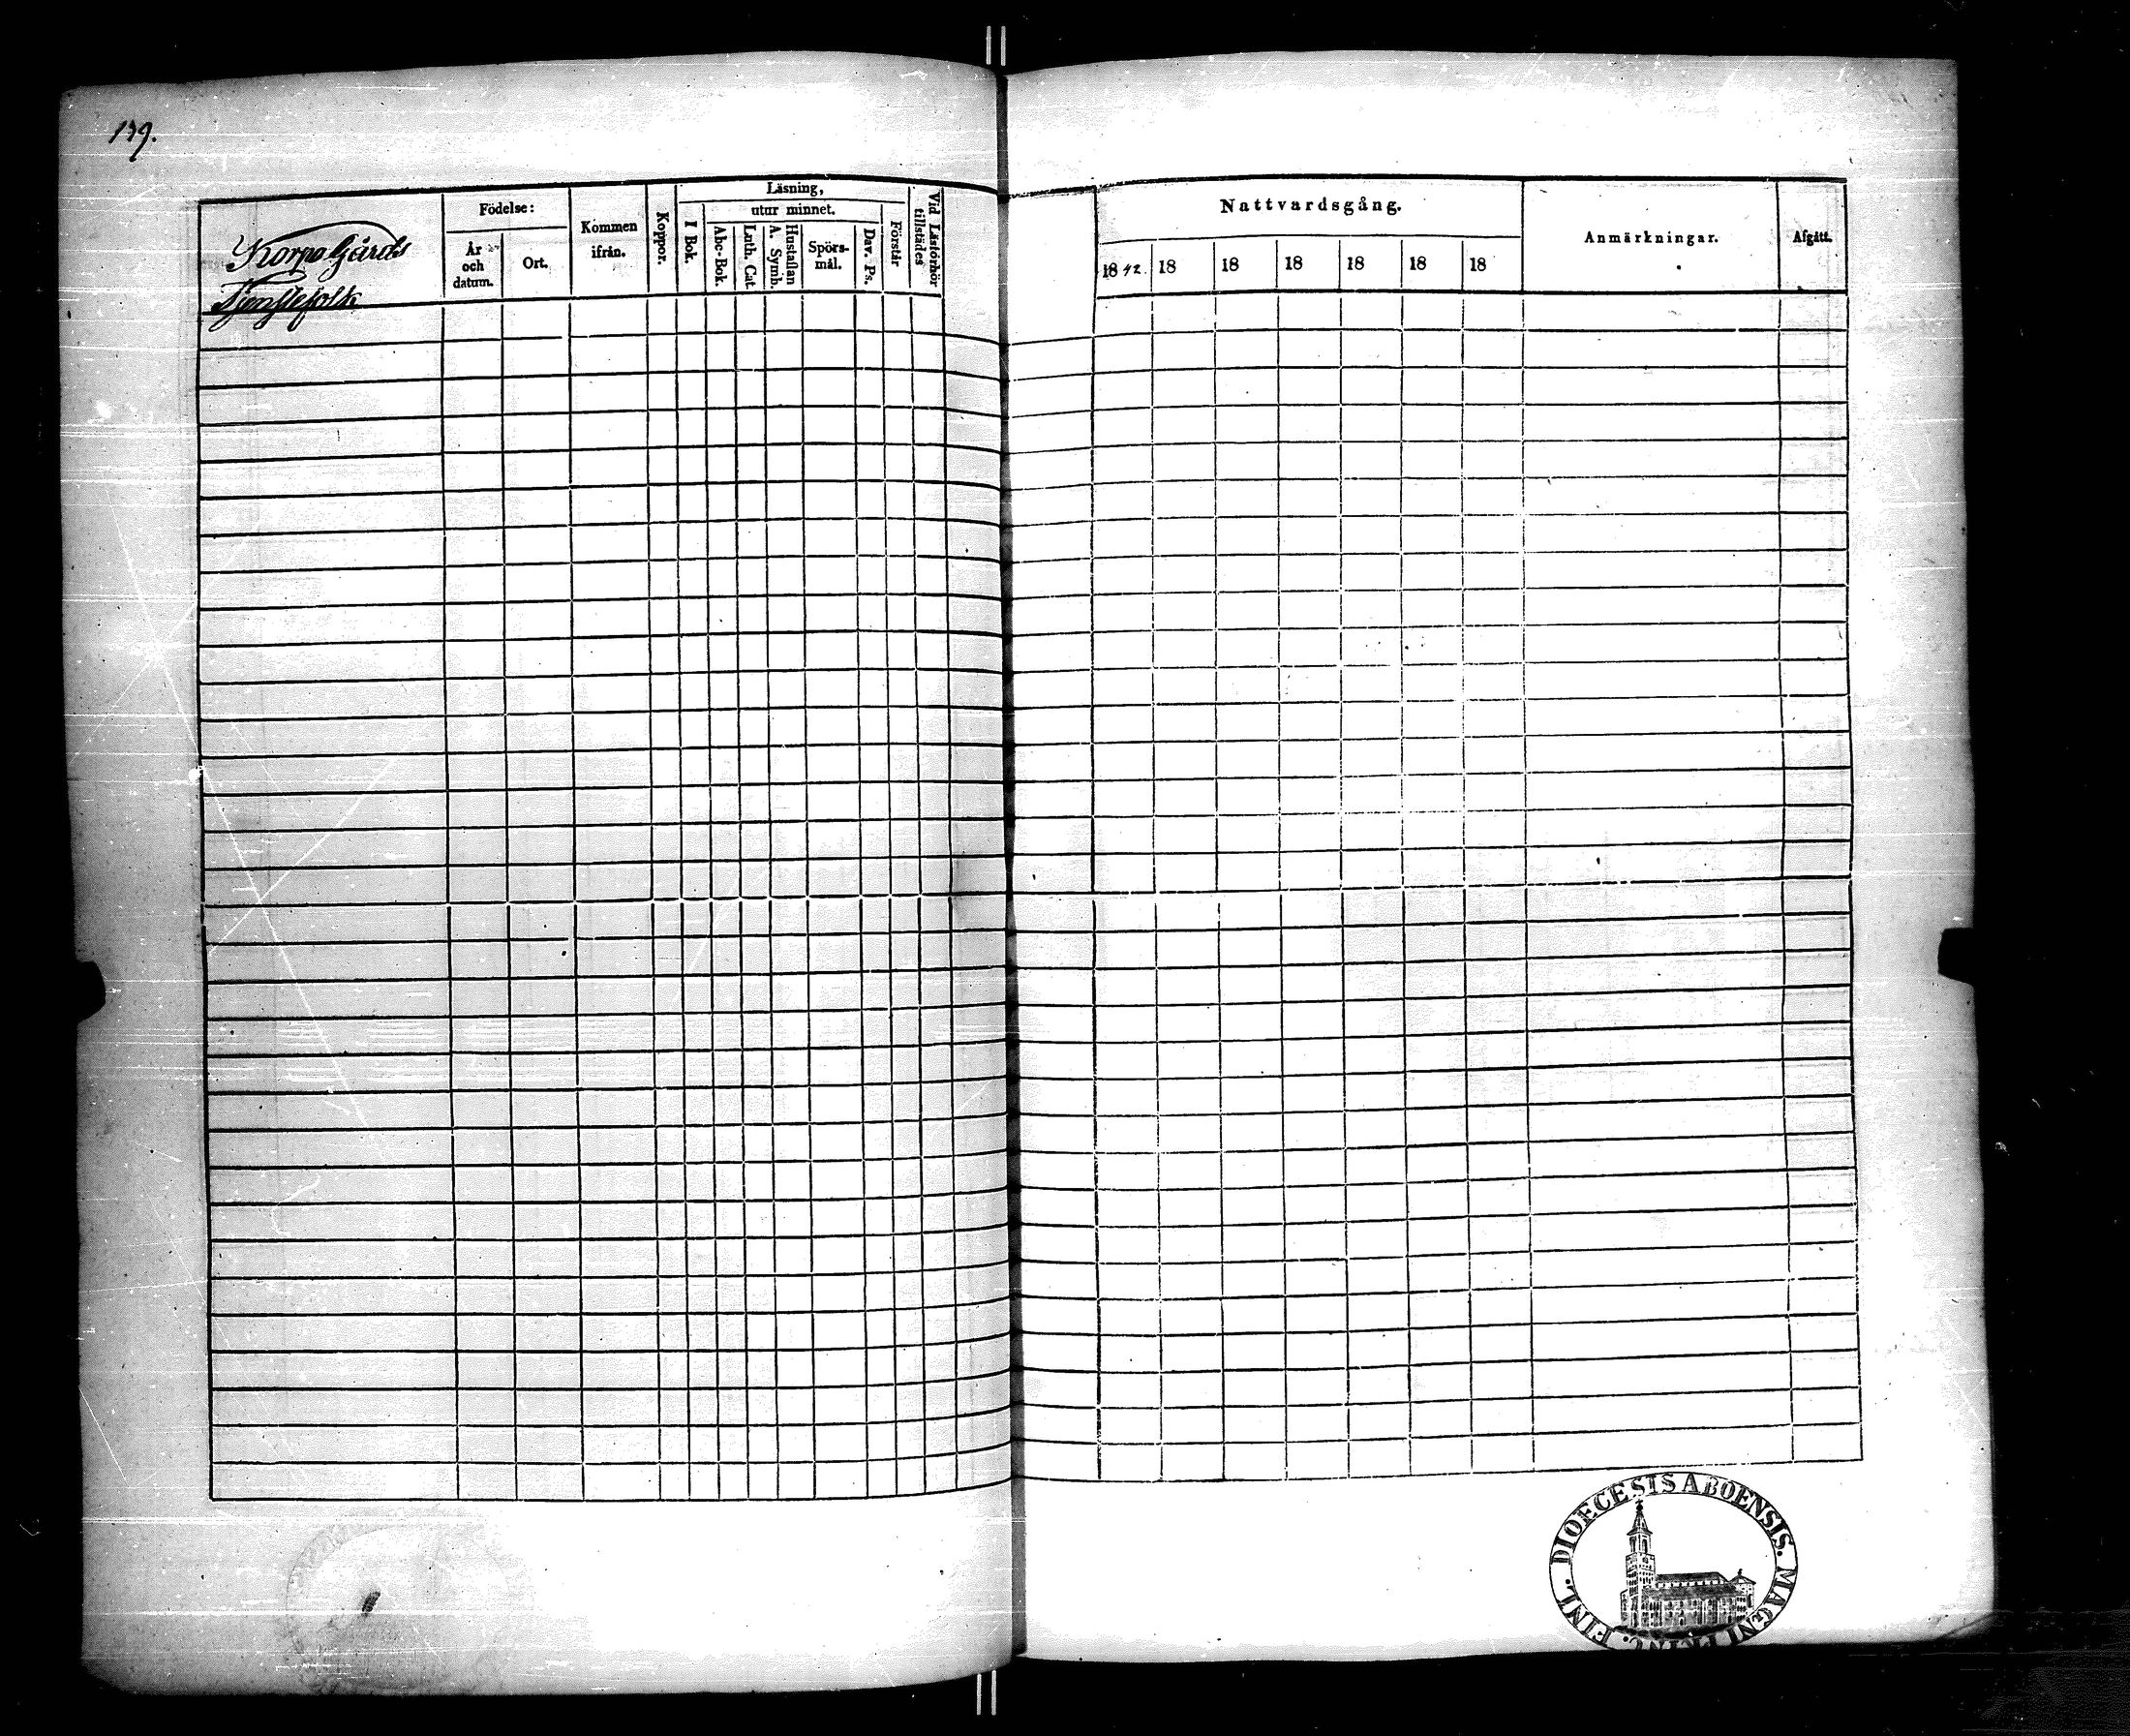 139.
Korpo Gårds
Tjenstefolk
Födelse:
År
och
datum.
Ort.
Kommen
ifrån.
Koppor.
Läsning,
I Bok.
utur minnet.
Abc-Bok.
Luth. Cat.
Hustaflan
A. Symb.
Spörs-
mål.
Dav. Ps.
Förstår
Vid Läsförhör
tillstädes
Nattvardsgång.
1842.
18
18
18
18
18
18
Anmärkningar.
Afgått.
DIOECESIS ABOENSIS. MAGNI PRINC. FINL.